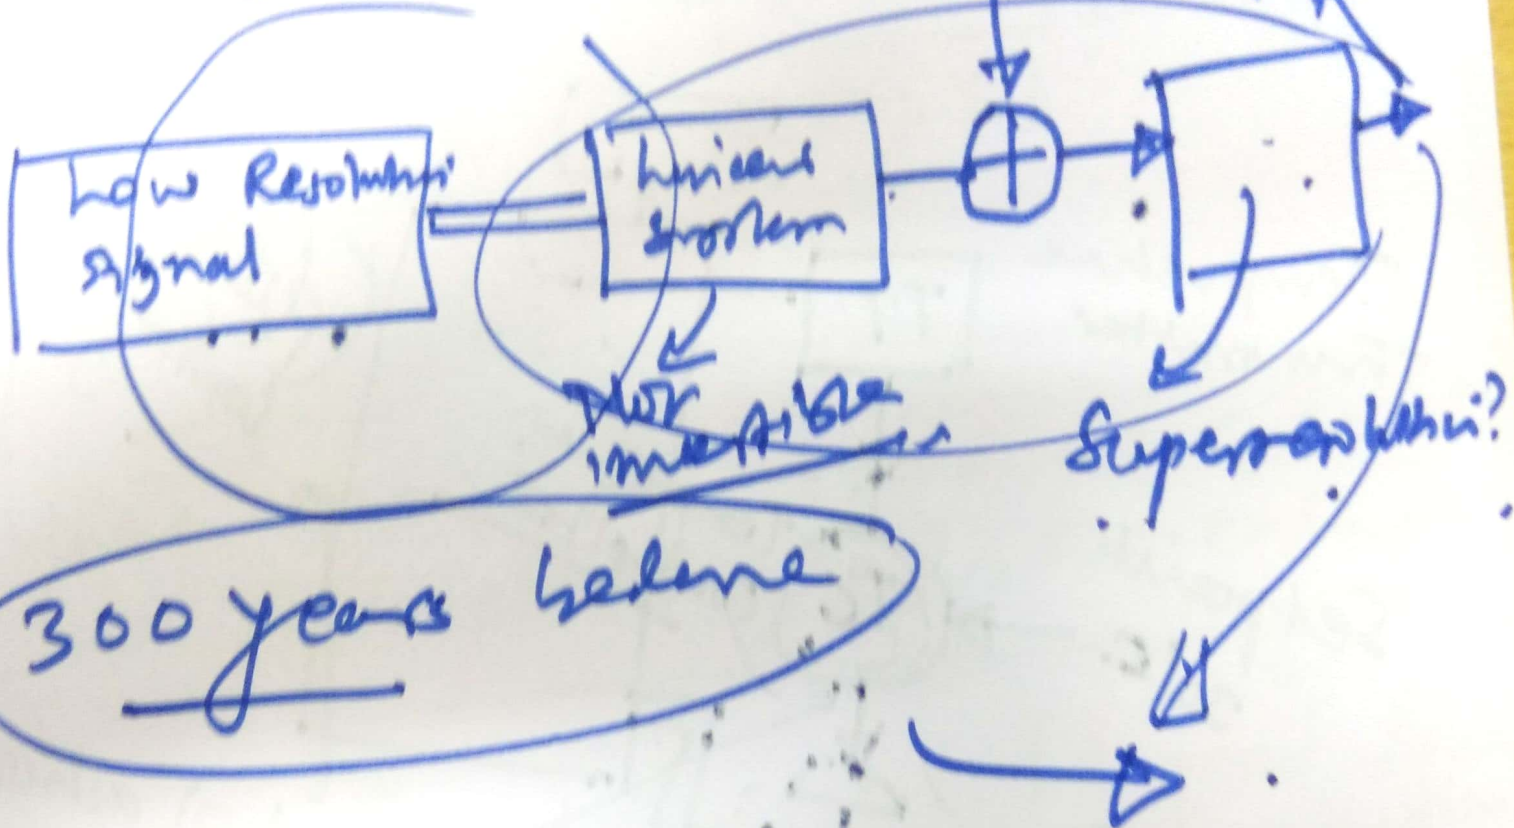 Low Resolution
signal
Linear
system
Not
invertible
Superresolution?
300 years before